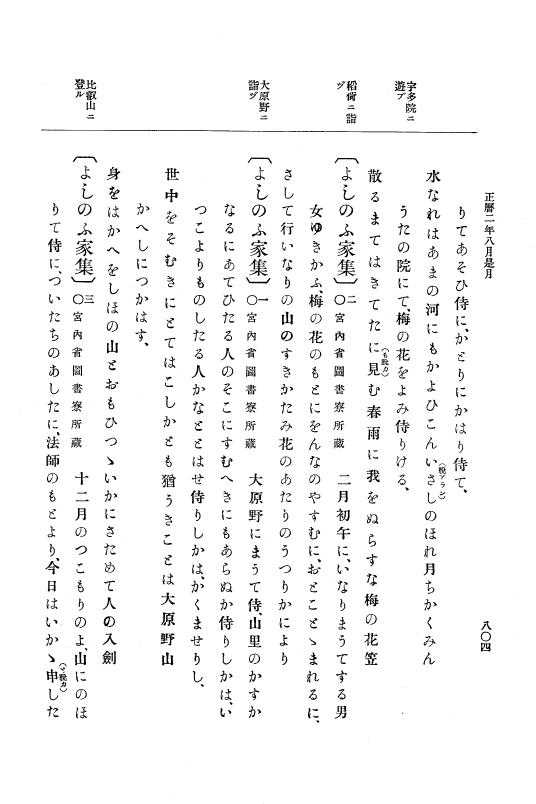 正曆二年八月是月
八〇四
宇多院ニ
遊ブ
稻荷ニ詣
ヅ
大原野ニ
詣ヅ
比叡山ニ
登ル
りてあそひ侍に、かとりにかはり侍て、
水なれはあまの河にもかよひこんいさしのほれ月ちかくみん
(脫アラン)
うたの院にて、梅の花をよみ侍りける、
散るまてはきてたに見む春雨に我をぬらすな梅の花笠
(も脫カ)
〔よしのふ家集〕〇二宮內省圖書寮所藏 二月初午に、いなりまうてする男
女ゆきかふ、梅の花のもとにをんなのやすむに、おとことゝまれるに、
さして行いなりの山のすきかたみ花のあたりのうつりかにより
〔よしのふ家集〕〇一宮內省圖書寮所藏 大原野にまうて侍、山里のかすか
なるにあてひたる人のそこにすむへきにもあらぬか侍りしかは、い
つこよりものしたる人かなととはせ侍りしかは、かくませりし、
世中をそむきにとてはこしかとも猶うきことは大原野山
かへしにつかはす、
身をはかへをしほの山とおもひつゝいかにさためて人の入劍
〔よしのふ家集〕〇三宮內省圖書寮所藏 十二月のつこもりのよ、山にのほ
りて侍に、ついたちのあしたに、法師のもとより、今日はいかゝ申した